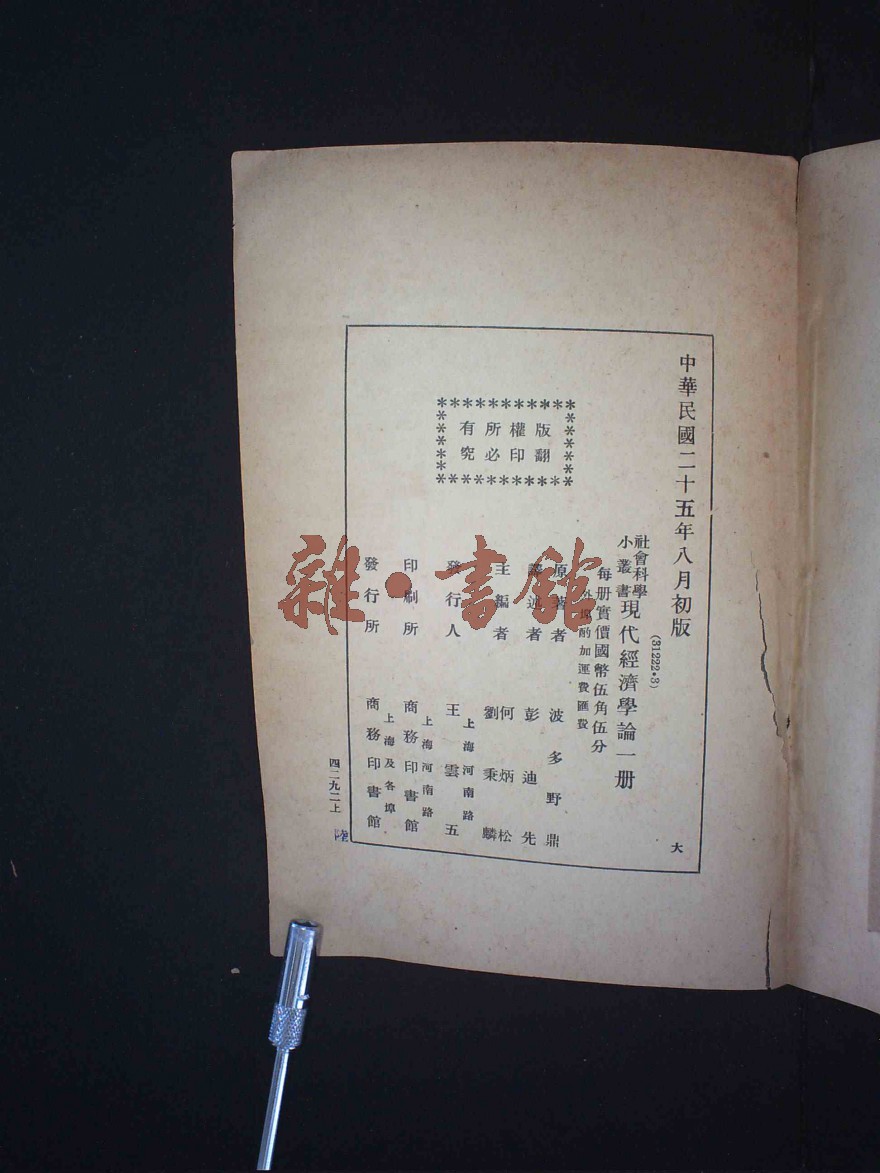 中華民國二十五年八月初版
(31222•3)
社會科學
小叢書
現代經濟學論一册
每册實價國幣伍角伍分
外埠酌加運費匯費
原著者 波多野鼎
譯述者 彭迪先
主編者 何炳松
劉秉麟
發行人 王雲五
上海河南路
印刷所 商務印書館
上海河南路
發行所 商務印書館
上海及各埠
版權所有
翻印必究
大
四二九二上
雜·書館